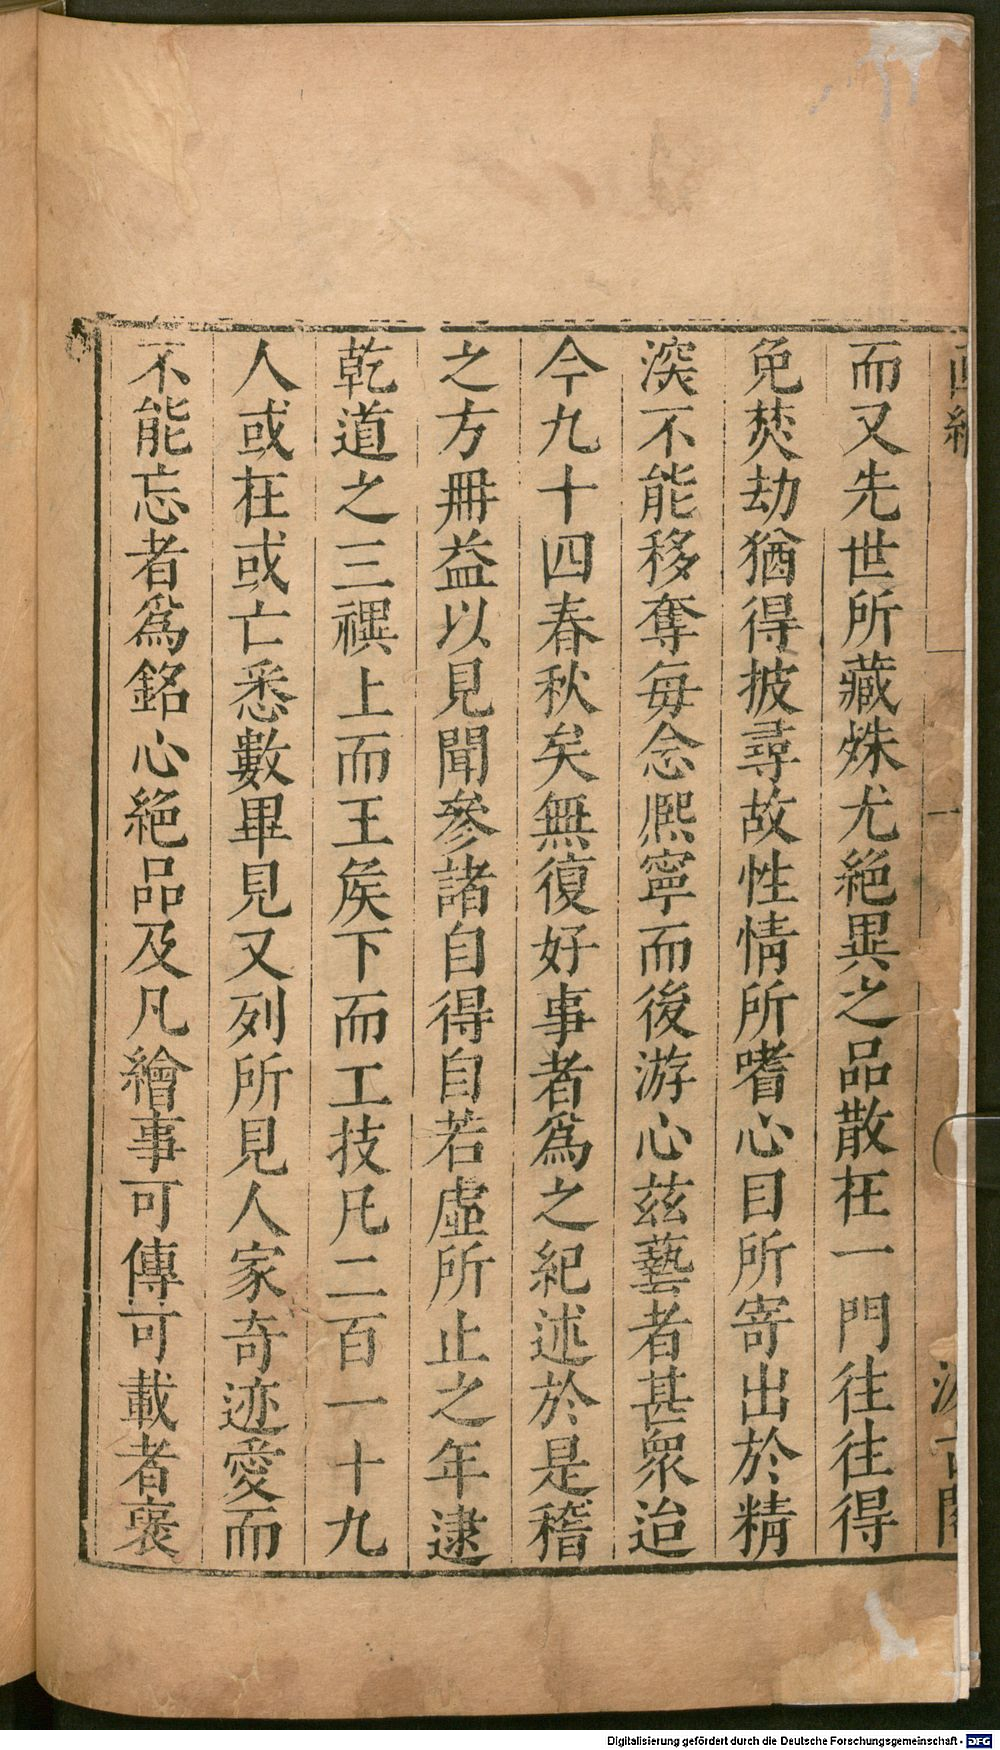 而又先世所藏姝尤絕異之品散在一門往往得
免焚劫猶得披尋故性情所嗜心目所寄出於精
深不能移奪每念熈寧而後游心茲藝者甚衆迨
今九十四春秋矣無復好事者爲之紀述於是稽
之方冊益以見聞參諸自得自若虛所止之年逮
乾道之三禩上而王矦下而工技凡二百一十九
人或在或亡悉數畢見又列所見人家奇迹愛而
不能忘者爲銘心絕品及凡繪事可傳可載者裒
Digitalisierung gefördert durch die Deutsche Forschungsgemeinschaft - DFG